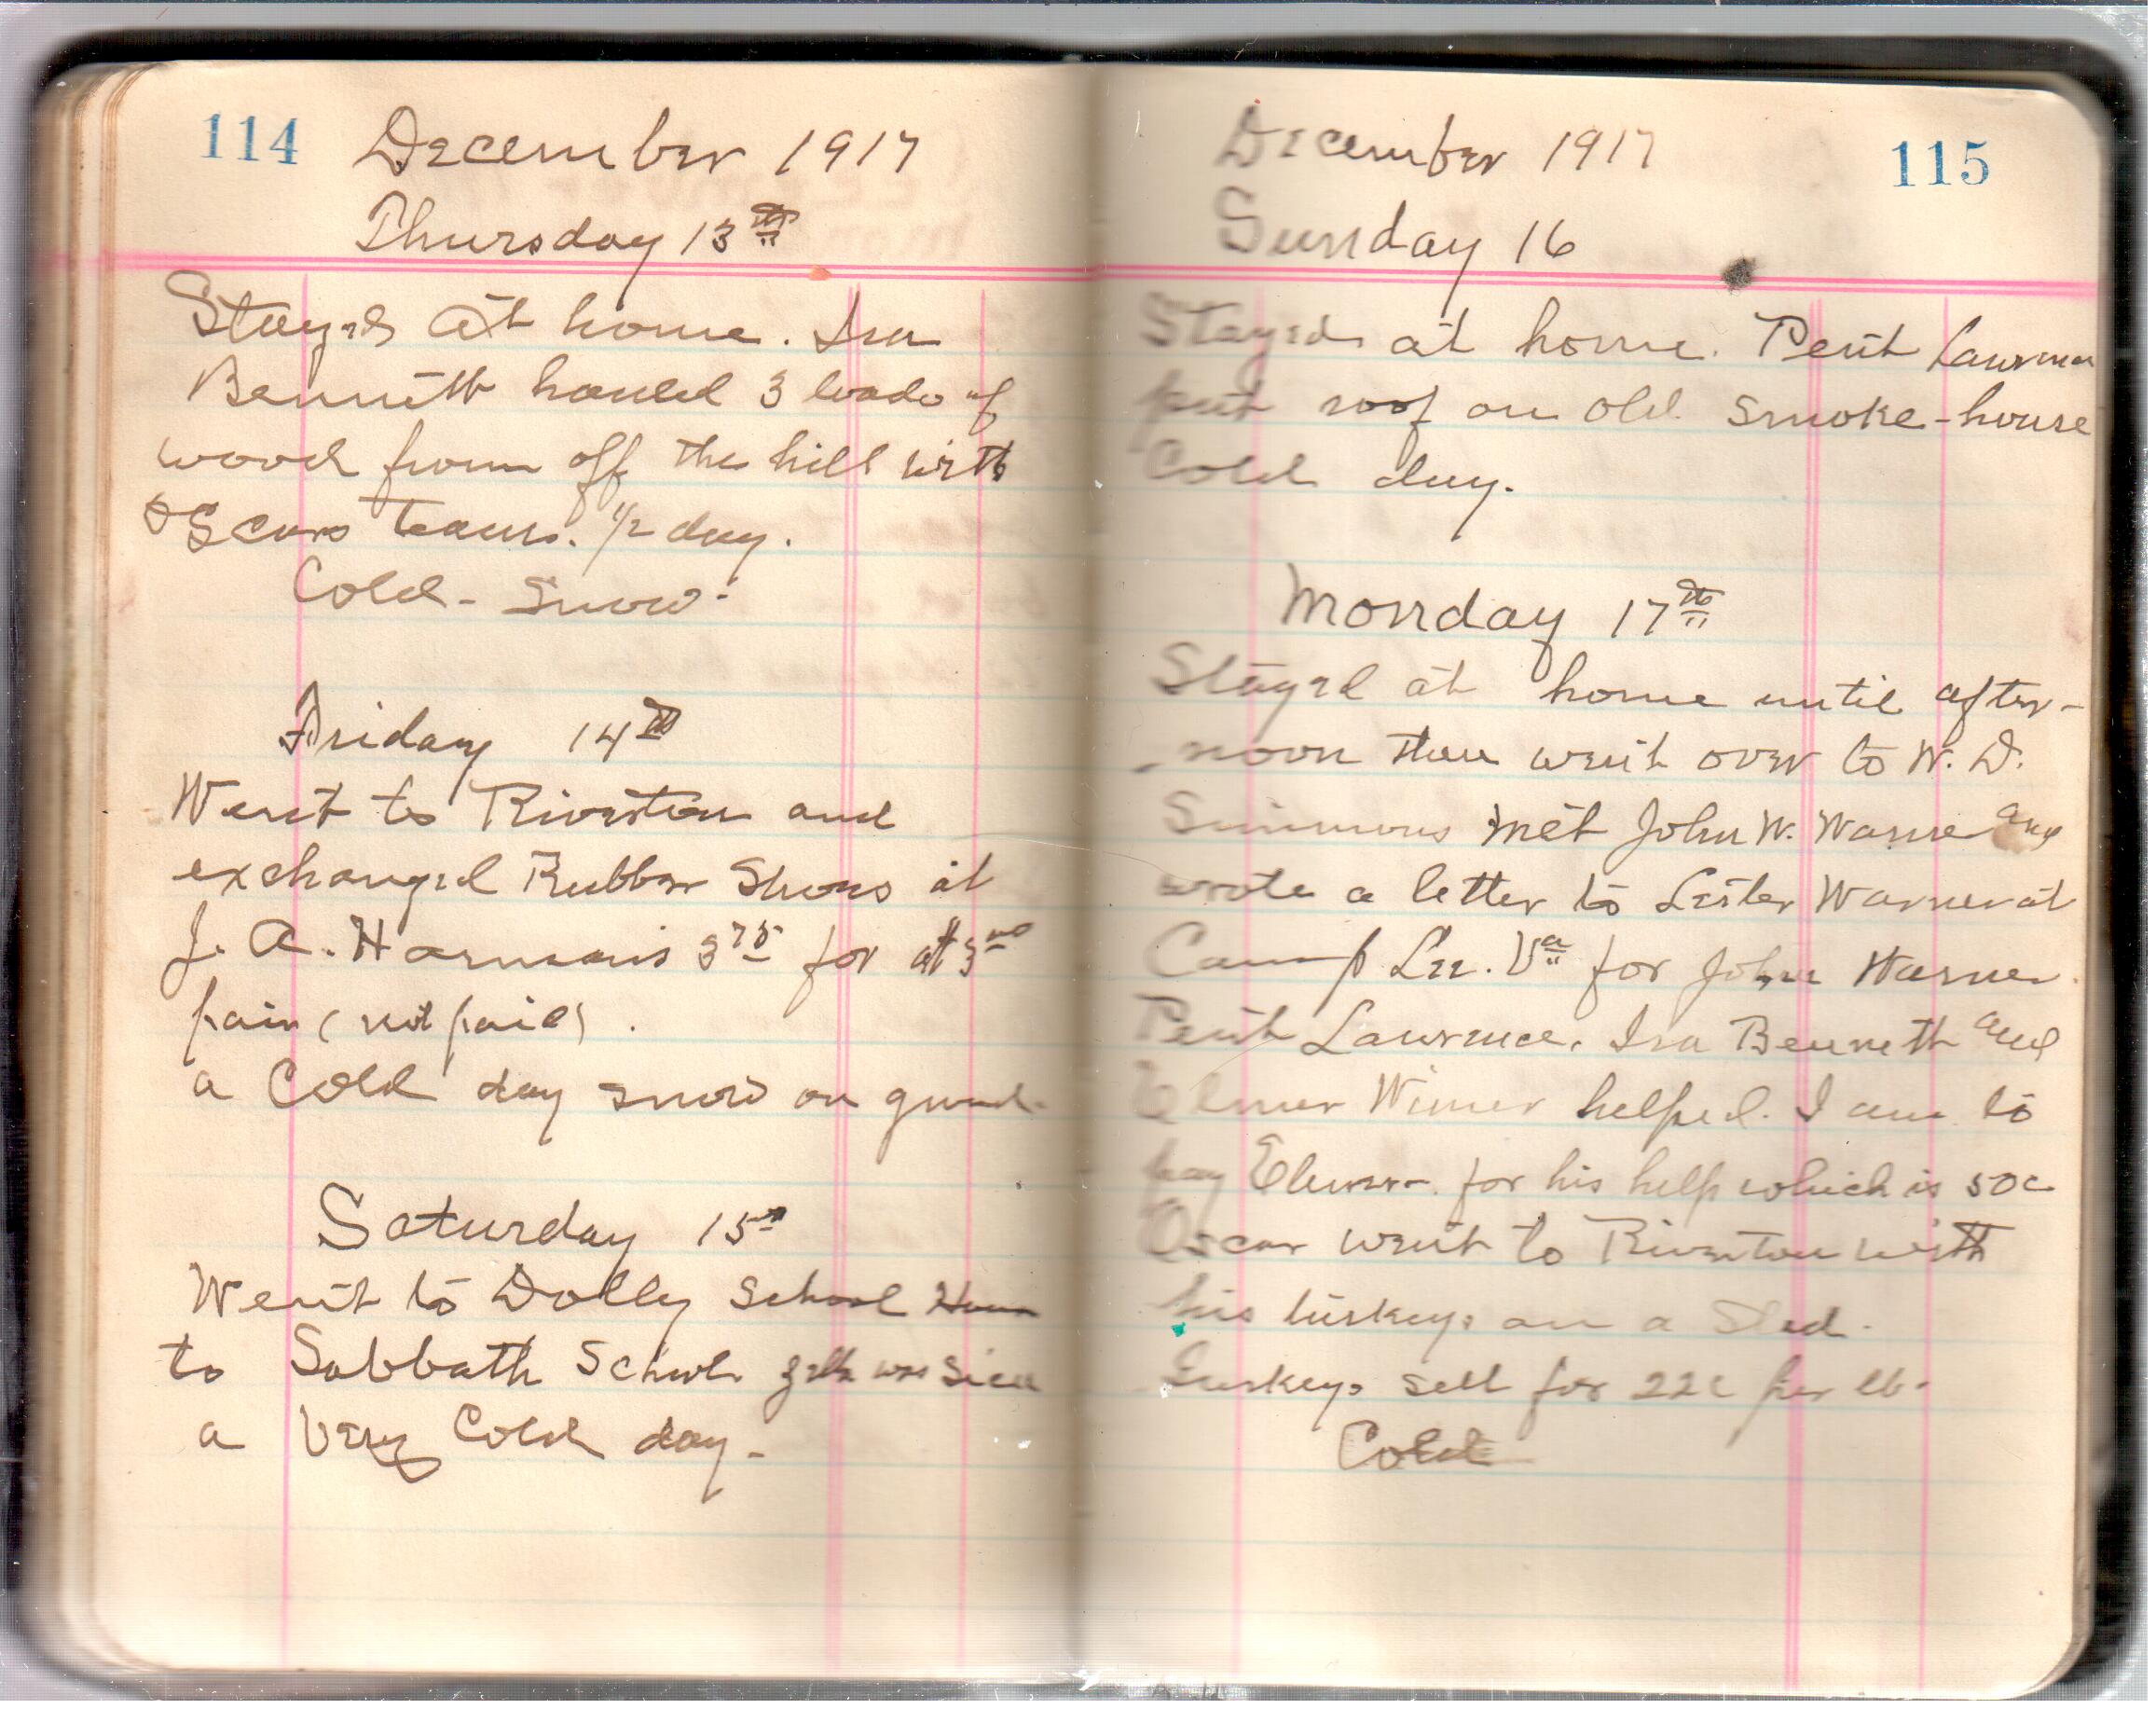 114 December 1917
Thursday 13th
Stayed at home. Ira
Bennett hauled 3 loads of
wood from off the hill with
Oscars team. 1/2 day.
Cold - Snow.
Friday 14th
Went to Riverton and
exchanged Rubber Shoes at
J. A. Harman's 3 75 for
pair (not paid).
a Cold day snow on ground.
Saturday 15th
Went to Dolly School House
to Sabbath School was Sick
a Very Cold day.
December 1917 115
Sunday 16
Stayed at home. Pent Lawrence
put roof on old smoke-house
Cold day.
Monday 17th
Stayed at home until after-
noon then went over to W. D.
Simmons met John W. Warner and
wrote a letter to Lester Warner at
Camp Lee. Va for John Warner.
Pent Lawrence, Ira Bennett and
Elmer Wimer helped. I am to
pay Elmer for his help which is 50c
Oscar went to Riverton with
his turkeys on a Sled.
Turkeys sell for 22c per lb.
Cold